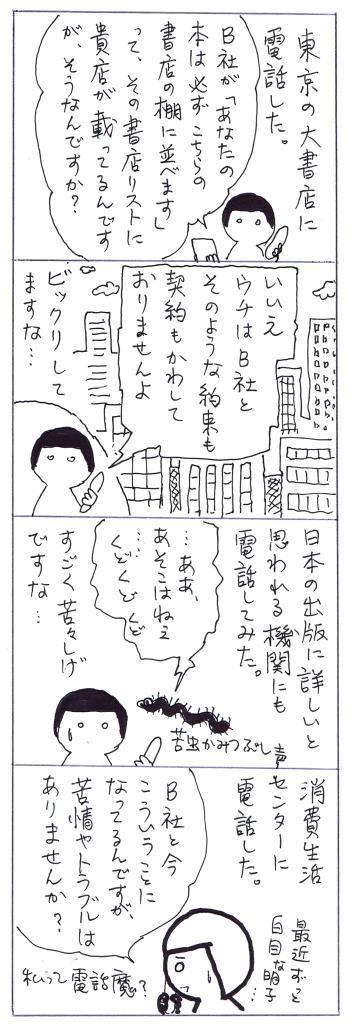 東京の大書店に
電話した。
B社が「あなたの
本は必ずこちらの
書店の棚に並べます」
って、その書店リストに
貴店が載ってるんです
が、そうなんですか？
いいえ
ウチはB社と
そのような約束も
契約もかわして
おりませんよ
ビックリして
ますな…
日本の出版に詳しいと
思われる機関にも
電話してみた。
…ああ、
あそこはねえ
……
くどくどくど
すごく苦々しげ
ですな…
苦虫かみつぶし声
消費生活
センターに
電話した。
B社と今
こういうことに
なってるんですが、
苦情やトラブルは
ありませんか？
最近ずっと
白目な明子…
私って電話魔？